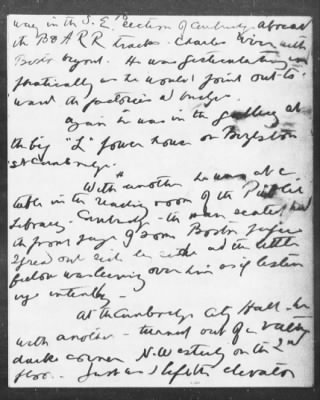 way in the S. E. section of Cambridge across
the B & A R R tracks - Charles River with
Boston beyond. He was gesticulating em
phatically as he would point out to
ward the factories and bridge.
again he was in the gallery at
the big "L" power house on Boylston
st Cambridge.
With another he was at a
table in the reading room of the Public
Library, Cambridge - the man seated had
the front page of some Boston paper
spread out and the little
fellow was leaning over him as if listen
ing intently -
At the Cambridge City Hall - he
with another - turned out of a rather
dark corner N. Westerly on the 2nd
floor. - Just as I left the elevator